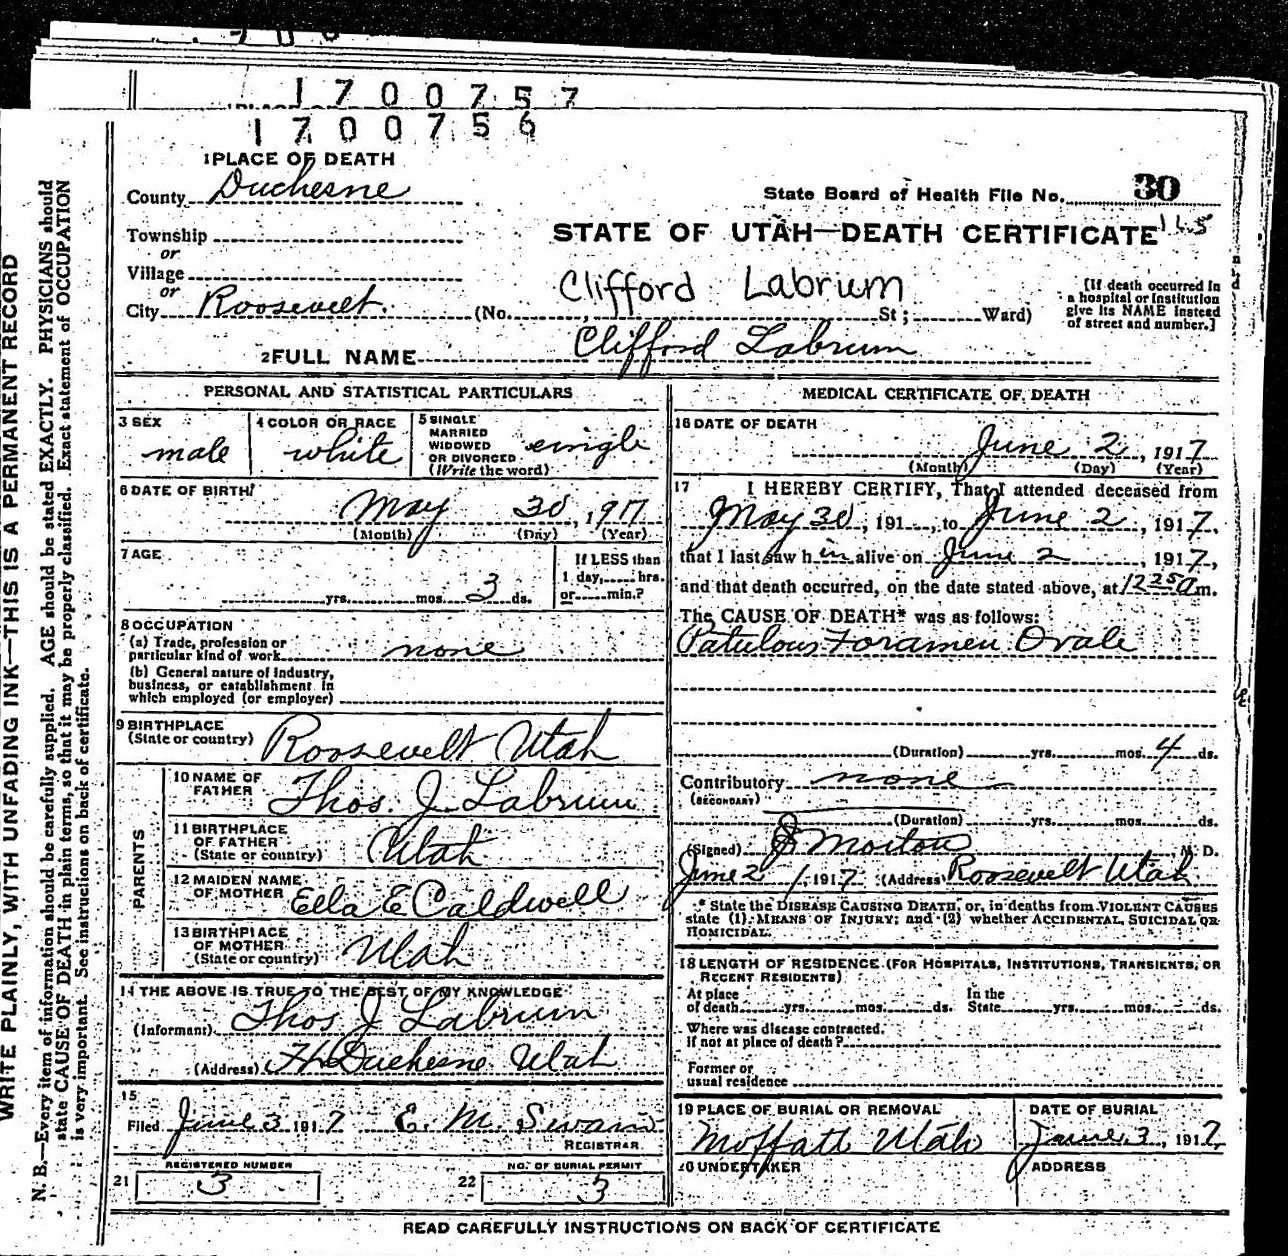 1700757
1700756
1 PLACE OF DEATH
County Duchesne
State Board of Health File No. 30
Township
or
STATE OF UTAH—DEATH CERTIFICATE 165
Village
or
Clifford Labrum
City Roosevelt. (No. St; Ward)
[If death occurred in
a hospital or institution
give its NAME instead
of street and number.]
2 FULL NAME Clifford Labrum
PERSONAL AND STATISTICAL PARTICULARS
3 SEX
male
4 COLOR OR RACE
white
5 SINGLE
MARRIED
WIDOWED
OR DIVORCED
(Write the word)
single
6 DATE OF BIRTH
May 30, 1917
(Month) (Day) (Year)
7 AGE
yrs. mos. 3 ds.
If LESS than
1 day, hrs.
or min.?
8 OCCUPATION
(a) Trade, profession or
particular kind of work none
(b) General nature of industry,
business, or establishment in
which employed (or employer)
9 BIRTHPLACE
(State or country) Roosevelt Utah
PARENTS
10 NAME OF
FATHER Thos. J. Labrum
11 BIRTHPLACE
OF FATHER
(State or country) Utah
12 MAIDEN NAME
OF MOTHER Ella E Caldwell
13 BIRTHPLACE
OF MOTHER
(State or country) Utah
14 THE ABOVE IS TRUE TO THE BEST OF MY KNOWLEDGE
(Informant) Thos J Labrum
(Address) Ft Duchesne Utah
15
Filed June 3 1917 E. M. Swain
REGISTRAR
REGISTERED NUMBER
21 3
NO. OF BURIAL PERMIT
22 3
MEDICAL CERTIFICATE OF DEATH
16 DATE OF DEATH
June 2, 1917
(Month) (Day) (Year)
17 I HEREBY CERTIFY, That I attended deceased from
May 30, 191 , to June 2, 1917.
that I last saw h im alive on June 2, 1917,
and that death occurred, on the date stated above, at 12 25 a m.
The CAUSE OF DEATH* was as follows:
Patulous Foramen Ovale
(Duration) yrs. mos. 4 ds.
Contributory none
(SECONDARY)
(Duration) yrs. mos. ds.
(Signed) J Morton M. D.
June 2, 1917 (Address) Roosevelt Utah
* State the DISEASE CAUSING DEATH, or, in deaths from VIOLENT CAUSES
state (1) MEANS OF INJURY; and (2) whether ACCIDENTAL, SUICIDAL OR
HOMICIDAL.
18 LENGTH OF RESIDENCE (FOR HOSPITALS, INSTITUTIONS, TRANSIENTS, OR
RECENT RESIDENTS)
At place
of death yrs. mos. ds.
In the
State yrs. mos. ds.
Where was disease contracted,
if not at place of death?
Former or
usual residence
19 PLACE OF BURIAL OR REMOVAL
Moffatt Utah
DATE OF BURIAL
June 3, 1917
20 UNDERTAKER
ADDRESS
READ CAREFULLY INSTRUCTIONS ON BACK OF CERTIFICATE
WRITE PLAINLY, WITH UNFADING INK—THIS IS A PERMANENT RECORD
N. B.—Every item of information should be carefully supplied. AGE should be stated EXACTLY. PHYSICIANS should
state CAUSE OF DEATH in plain terms, so that it may be properly classified. Exact statement of OCCUPATION
is very important. See instructions on back of certificate.